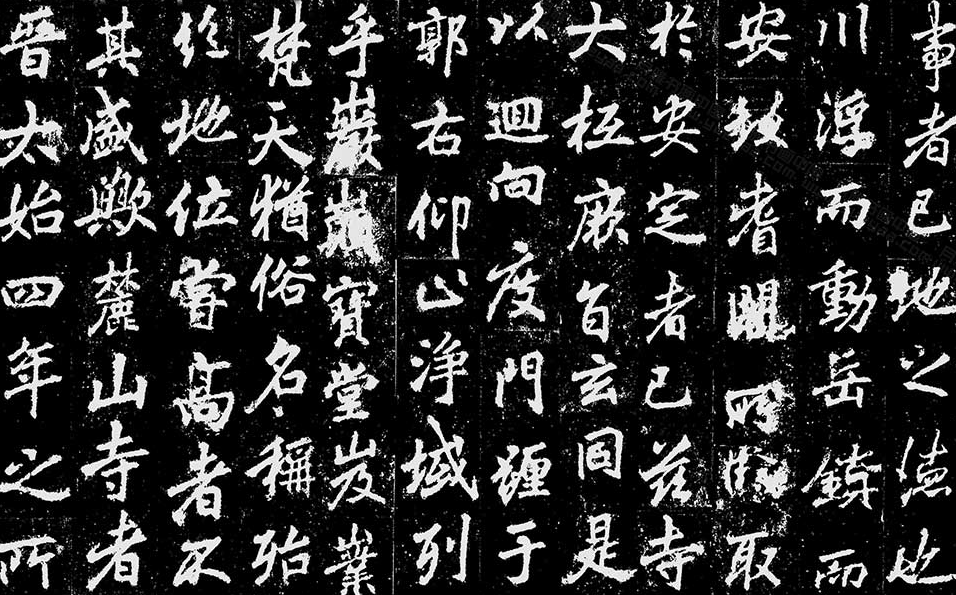 事者已地之德也
川浮而動岳鎮而
安故耆闍所臨取
於安定者已茲寺
大抵厥旨玄同是
以迴向度門纏于
郭右仰止淨域列
乎巖巔寶堂岌嶪
梵天猶俗名稱殆
絕地位嘗高者不
其盛歟麓山寺者
晉太始四年之所